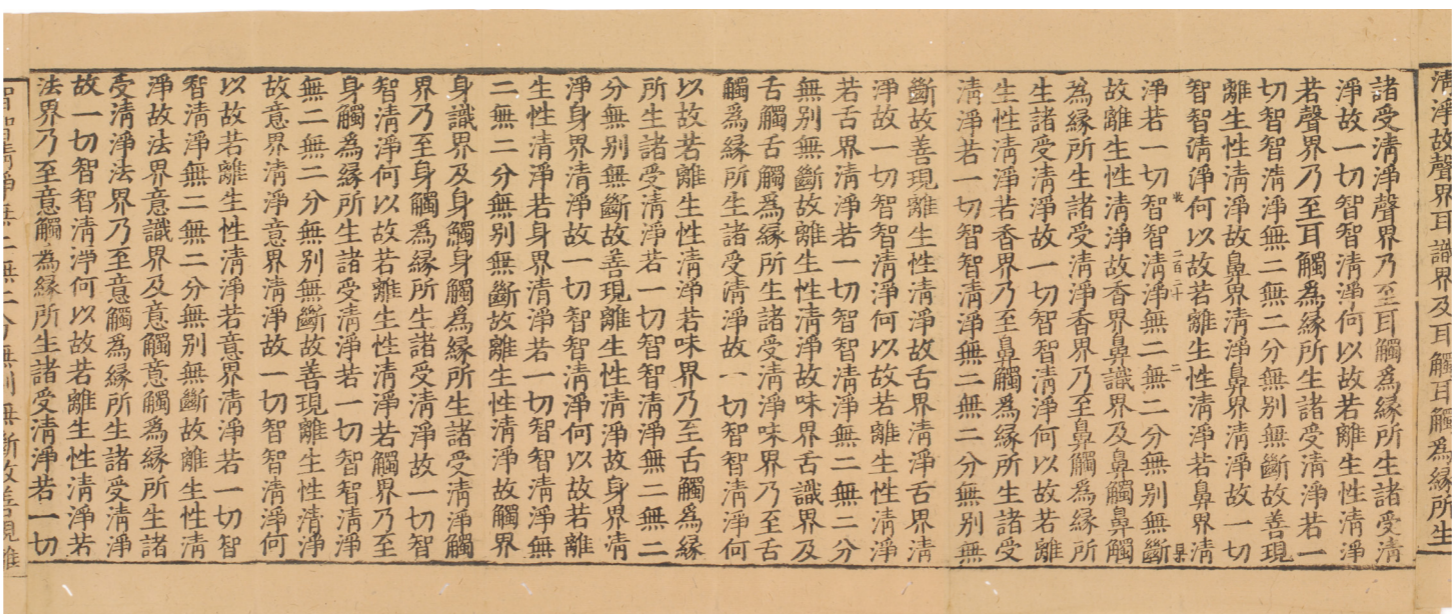 清淨故聲界耳識界及耳觸耳觸爲緣所生
諸受清淨聲界乃至耳觸爲緣所生諸受清
淨故一切智智清淨何以故若離生性清淨
若聲界乃至耳觸爲緣所生諸受清淨若一
切智智清淨無二無二分無別無斷故善現
離生性清淨故鼻界清淨鼻界清淨故一切
智智清淨何以故若離生性清淨若鼻界清
二百二十 二
淨若一切智智清淨無二無二分無別無斷
故離生性清淨故香界鼻識界及鼻觸鼻觸
爲緣所生諸受清淨香界乃至鼻觸爲緣所
生諸受清淨故一切智智清淨何以故若離
生性清淨若香界乃至鼻觸爲緣所生諸受
清淨若一切智智清淨無二無二分無別無
斷故善現離生性清淨故舌界清淨舌界清
淨故一切智智清淨何以故若離生性清淨
若舌界清淨若一切智智清淨無二無二分
無別無斷故離生性清淨故味界舌識界及
舌觸舌觸爲緣所生諸受清淨味界乃至舌
觸爲緣所生諸受清淨故一切智智清淨何
以故若離生性清淨若味界乃至舌觸爲緣
所生諸受清淨若一切智智清淨無二無二
分無別無斷故善現離生性清淨故身界清
淨身界清淨故一切智智清淨何以故若離
生性清淨若身界清淨若一切智智清淨無
二無二分無別無斷故離生性清淨故觸界
身識界及身觸身觸爲緣所生諸受清淨觸
界乃至身觸爲緣所生諸受清淨故一切智
智清淨何以故若離生性清淨若觸界乃至
身觸爲緣所生諸受清淨若一切智智清淨
無二無二分無別無斷故善現離生性清淨
故意界清淨意界清淨故一切智智清淨何
以故若離生性清淨若意界清淨若一切智
智清淨無二無二分無別無斷故離生性清
淨故法界意識界及意觸意觸爲緣所生諸
受清淨法界乃至意觸爲緣所生諸受清淨
故一切智智清淨何以故若離生性清淨若
法界乃至意觸爲緣所生諸受清淨若一切
智智清淨無二無二分無別無斷故善現離